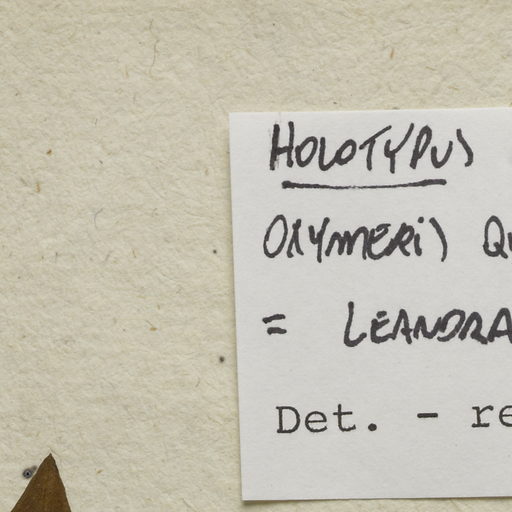 HOLOTYPUS
OXYMERIS QU
= LEANDRA
Det. - re